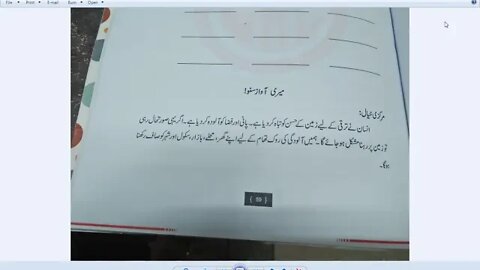 File Print E-mail Burn Open
میری آواز سنو!
مرکزی خیال:
انسان نے ترقی کے لیے زمین کے حسن کو تباہ کر دیا ہے۔ پانی اور فضا کو آلودہ کر دیا ہے۔ اگر یہی صورتحال رہی
تو زمین پر رہنا مشکل ہو جائے گا۔ ہمیں آلودگی کی روک تھام کے لیے اپنے گھر، محلے، بازار، سکول اور شہر کو صاف رکھنا
ہوگا۔
{ 59 }